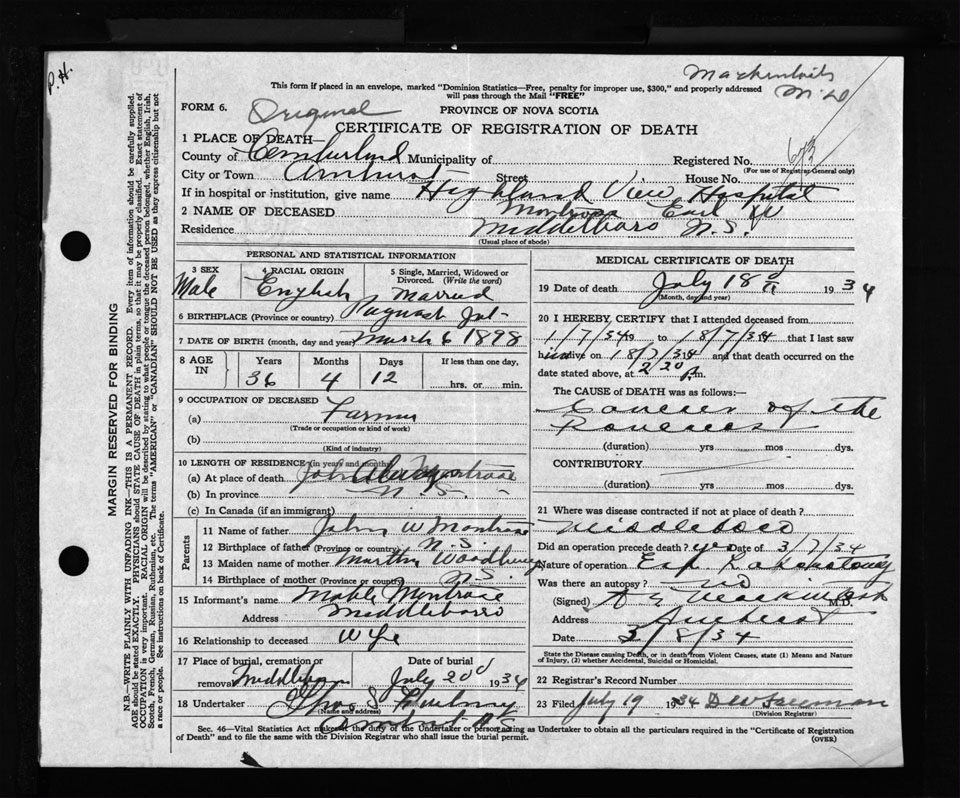 P.H.
This form if placed in an envelope, marked "Dominion Statistics—Free, penalty for improper use, $300," and properly addressed
will pass through the Mail "FREE"
M.D
FORM 6.
Original
PROVINCE OF NOVA SCOTIA
CERTIFICATE OF REGISTRATION OF DEATH
1 PLACE OF DEATH—
County of Cumberland Municipality of
Registered No.
(For use of Registrar-General only)
City or Town Amherst Street House No.
If in hospital or institution, give name Highland View Hospital
2 NAME OF DECEASED Montrose Earl W
Residence Middleboro N.S.
(Usual place of abode)
PERSONAL AND STATISTICAL INFORMATION
3 SEX
Male
4 RACIAL ORIGIN
English
5 Single, Married, Widowed or Divorced. (Write the word)
Married
6 BIRTHPLACE (Province or country) Pugwash
7 DATE OF BIRTH (month, day and year) March 6 1898
8 AGE IN
Years Months Days If less than one day,
36 4 12 hrs. or min.
9 OCCUPATION OF DECEASED
(a) Farmer
(Trade or occupation or kind of work)
(b)
(Kind of industry)
10 LENGTH OF RESIDENCE (in years and months)
(a) At place of death Always
(b) In province
(c) In Canada (if an immigrant)
Parents
11 Name of father John W Montrose
12 Birthplace of father (Province or country) N.S.
13 Maiden name of mother Martha Woodbury
14 Birthplace of mother (Province or country) N.S.
15 Informant's name Mable Montrose
Address Middleboro
16 Relationship to deceased Wife
17 Place of burial, cremation or removal Middleboro
Date of burial July 20 1934
18 Undertaker Thos S
(Name and address)
Amherst N S
MEDICAL CERTIFICATE OF DEATH
19 Date of death July 18 1934
(Month, day and year)
20 I HEREBY CERTIFY that I attended deceased from
1/7/34 19 to 18/7/34 that I last saw
him alive on 18/7/34 and that death occurred on
date stated above, at 2 20 P.m.
The CAUSE OF DEATH was as follows:—
Cancer of the
(duration) yrs mos dys.
CONTRIBUTORY
(duration) yrs mos dys.
21 Where was disease contracted if not at place of death?
Middleboro
Did an operation precede death? yes Date of 3/7/34
Nature of operation Exp. Laparotomy
Was there an autopsy? No
(Signed) Mackintosh M.D.
Address Amherst
Date 3/8/34
State the Disease causing Death, or in death from Violent Causes, state (1) Means and Nature
of Injury, (2) whether Accidental, Suicidal or Homicidal.
22 Registrar's Record Number
23 Filed July 19 1934
(Division Registrar)
Sec. 46—Vital Statistics Act makes it the duty of the Undertaker or person acting as Undertaker to obtain all the particulars required in the "Certificate of Registration
of Death" and to file the same with the Division Registrar who shall issue the burial permit.
(OVER)
MARGIN RESERVED FOR BINDING
N.B.—WRITE PLAINLY WITH UNFADING INK—THIS IS A PERMANENT RECORD. Every item of information should be carefully supplied.
AGE should be stated EXACTLY. PHYSICIANS should STATE CAUSE OF DEATH in plain terms, so that it may be properly classified. Exact statement of
OCCUPATION is very important. RACIAL ORIGIN will be described by stating to what people or tongue the deceased person belonged, whether English, Irish,
Scotch, French, German, Russian, Ruthenian, etc. The terms "AMERICAN" or "CANADIAN" SHOULD NOT BE USED as they express citizenship but not
a race or people. See instructions on back of Certificate.